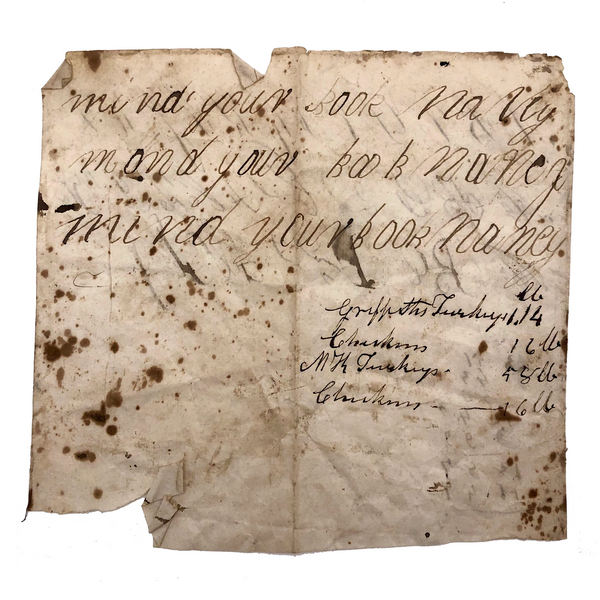 mind your book Nancy
mond your book Nancy
mind your book Nancy
lb
Griffiths Turkeys 114
Chickens 16 lb
MK Turkeys. 58 lb
Chickens - 16 lb